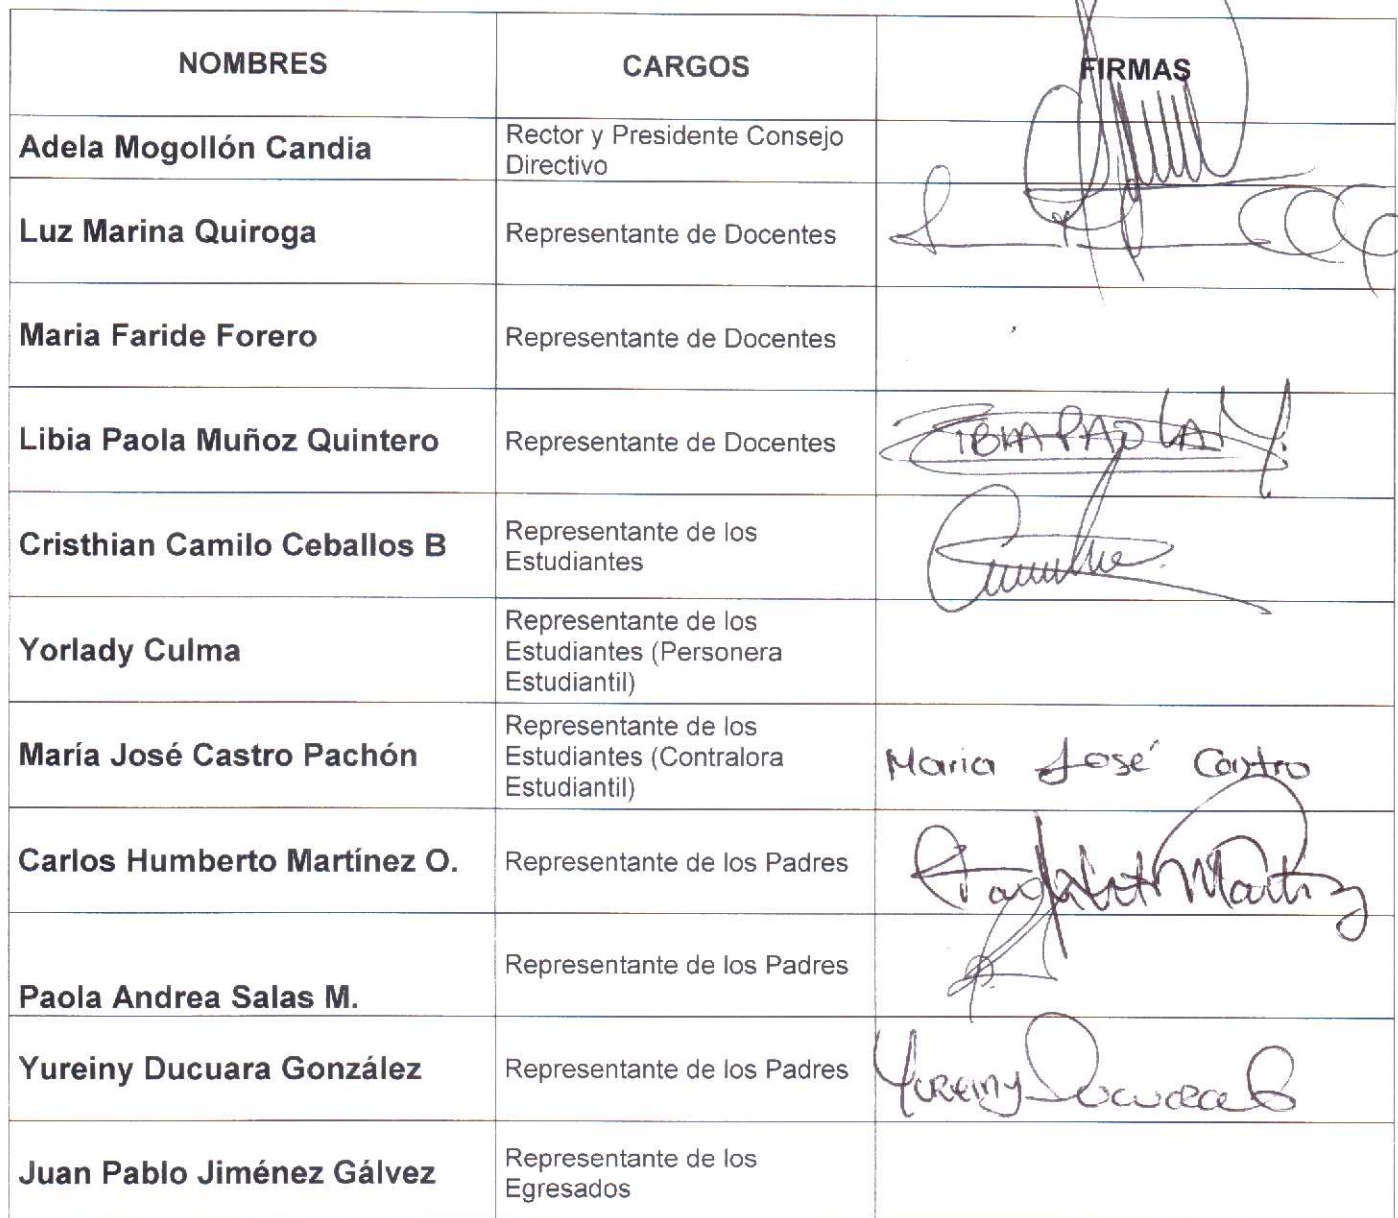 NOMBRES CARGOS FIRMAS
Adela Mogollón Candia Rector y Presidente Consejo
Directivo
Luz Marina Quiroga Representante de Docentes
Maria Faride Forero Representante de Docentes
Libia Paola Muñoz Quintero Representante de Docentes LIBIA PAOLA M.
Cristhian Camilo Ceballos B Representante de los
Estudiantes
Yorlady Culma Representante de los
Estudiantes (Personera
Estudiantil)
María José Castro Pachón Representante de los
Estudiantes (Contralora
Estudiantil)
Maria José Castro
Carlos Humberto Martínez O. Representante de los Padres
Paola Andrea Salas M. Representante de los Padres
Yureiny Ducuara González Representante de los Padres Yureiny Ducuara G
Juan Pablo Jiménez Gálvez Representante de los
Egresados